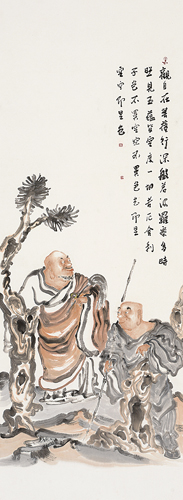 觀自在菩薩行深般若波羅蜜多時
照見五蘊皆空度一切苦厄舍利
子色不異空空不異色色即是
空空即是色